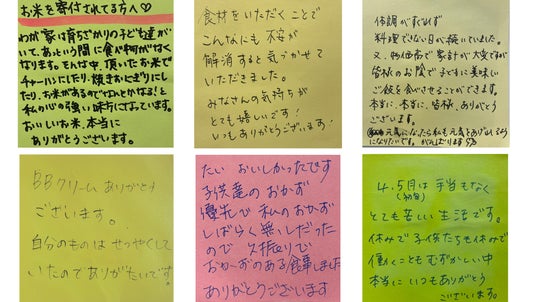 お米を寄付されてる方へ♡
わが家は育ちざかりの子ども達が
いて、あという間に食べ物がなく
なります。そんな中、頂いたお米で
チャーハンにしたり・焼きおにぎりにし
たり、お米があるのでなんとかなる!と
私の心の強い味方になっています。
おいしいお米、本当に
ありがとうございます。
食材をいただくことで
こんなにも不安が
解消すると気づかせて
いただきました。
みなさんの気持ちが
とても嬉しいです!
いつもありがとうございます!
体調がすぐれず
料理できない日が続いていました。
又、物価高で家計が大変ですが
皆様のお陰で子ども美味しい
ご飯を食べさせることができます。
本当に、本当に、皆様、ありがとう
ございます。
元気になったら私も元気をあげれるよう
になりたいです。がんばります
BBクリームありがとう
ございます。
自分のものはせっやくして
いたのでありがたいです。
たい おいしかったです
子供達のおかず
優先で私のおかず
しばらく無しだった
ので 久振りで
おかずのある食事しました
ありがとうございます
4.5月は手当もなく
とても苦しい生活です。
休みで子供たちも休みで
働くこともむずかしい中
本当にいつもありがとう
ございます。